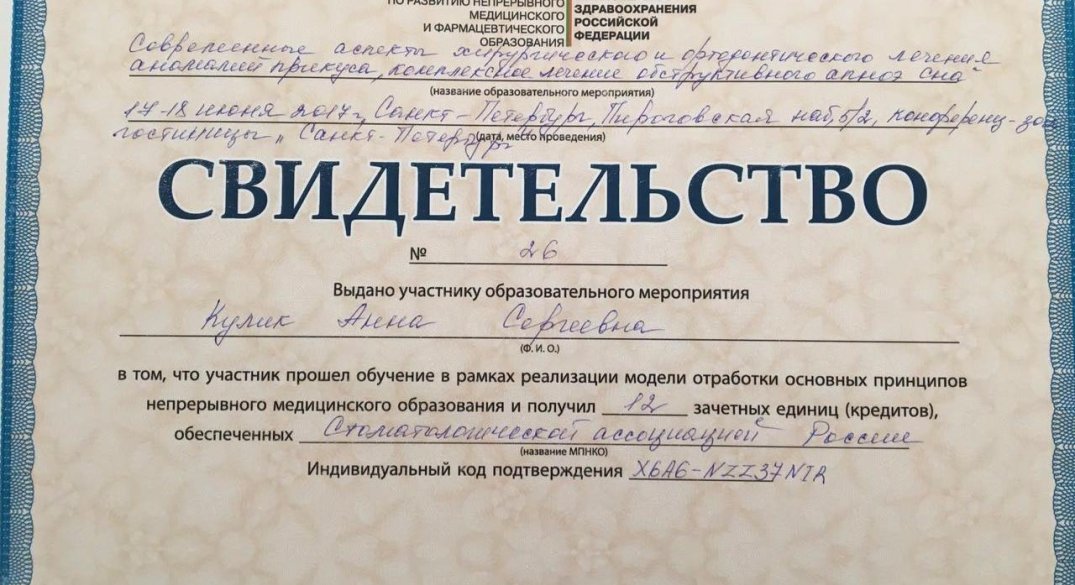 ПО РАЗВИТИЮ НЕПРЕРЫВНОГО
МЕДИЦИНСКОГО
И ФАРМАЦЕВТИЧЕСКОГО
ОБРАЗОВАНИЯ
ЗДРАВООХРАНЕНИЯ
РОССИЙСКОЙ
ФЕДЕРАЦИИ
Современные аспекты хирургического и ортодонтического лечения
аномалий прикуса, комплексное лечение обструктивного апноэ сна
(название образовательного мероприятия)
17-18 июня 2017г, Санкт-Петербург, Пироговская наб, 5/2, конференц-зал
гостиницы „Санкт-Петербург
(дата, место проведения)
СВИДЕТЕЛЬСТВО
№ 26
Выдано участнику образовательного мероприятия
Кулик Анна Сергеевна
(Ф. И. О.)
в том, что участник прошел обучение в рамках реализации модели отработки основных принципов
непрерывного медицинского образования и получил 12 зачетных единиц (кредитов),
обеспеченных Стоматологической ассоциацией России
(название МПНКО)
Индивидуальный код подтверждения X6A6-NZZ37NIR